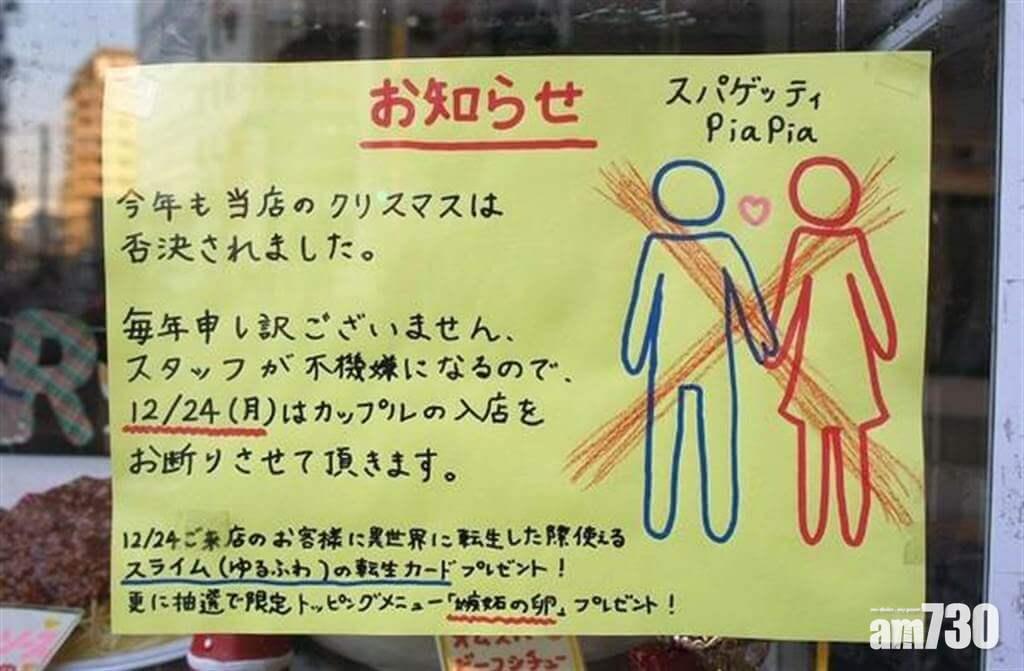 お知らせ
スパゲッティ
PiaPia
今年も当店のクリスマスは
否決されました。
毎年申し訳ございません、
スタッフが不機嫌になるので、
12/24(月)はカップルの入店を
お断りさせて頂きます。
12/24ご来店のお客様に異世界に転生した際使える
スライム(ゆるふわ)の転生カードプレゼント!
更に抽選で限定トッピングメニュー「嫉妬の卵」プレゼント!
R
ビーフシチュー
am730